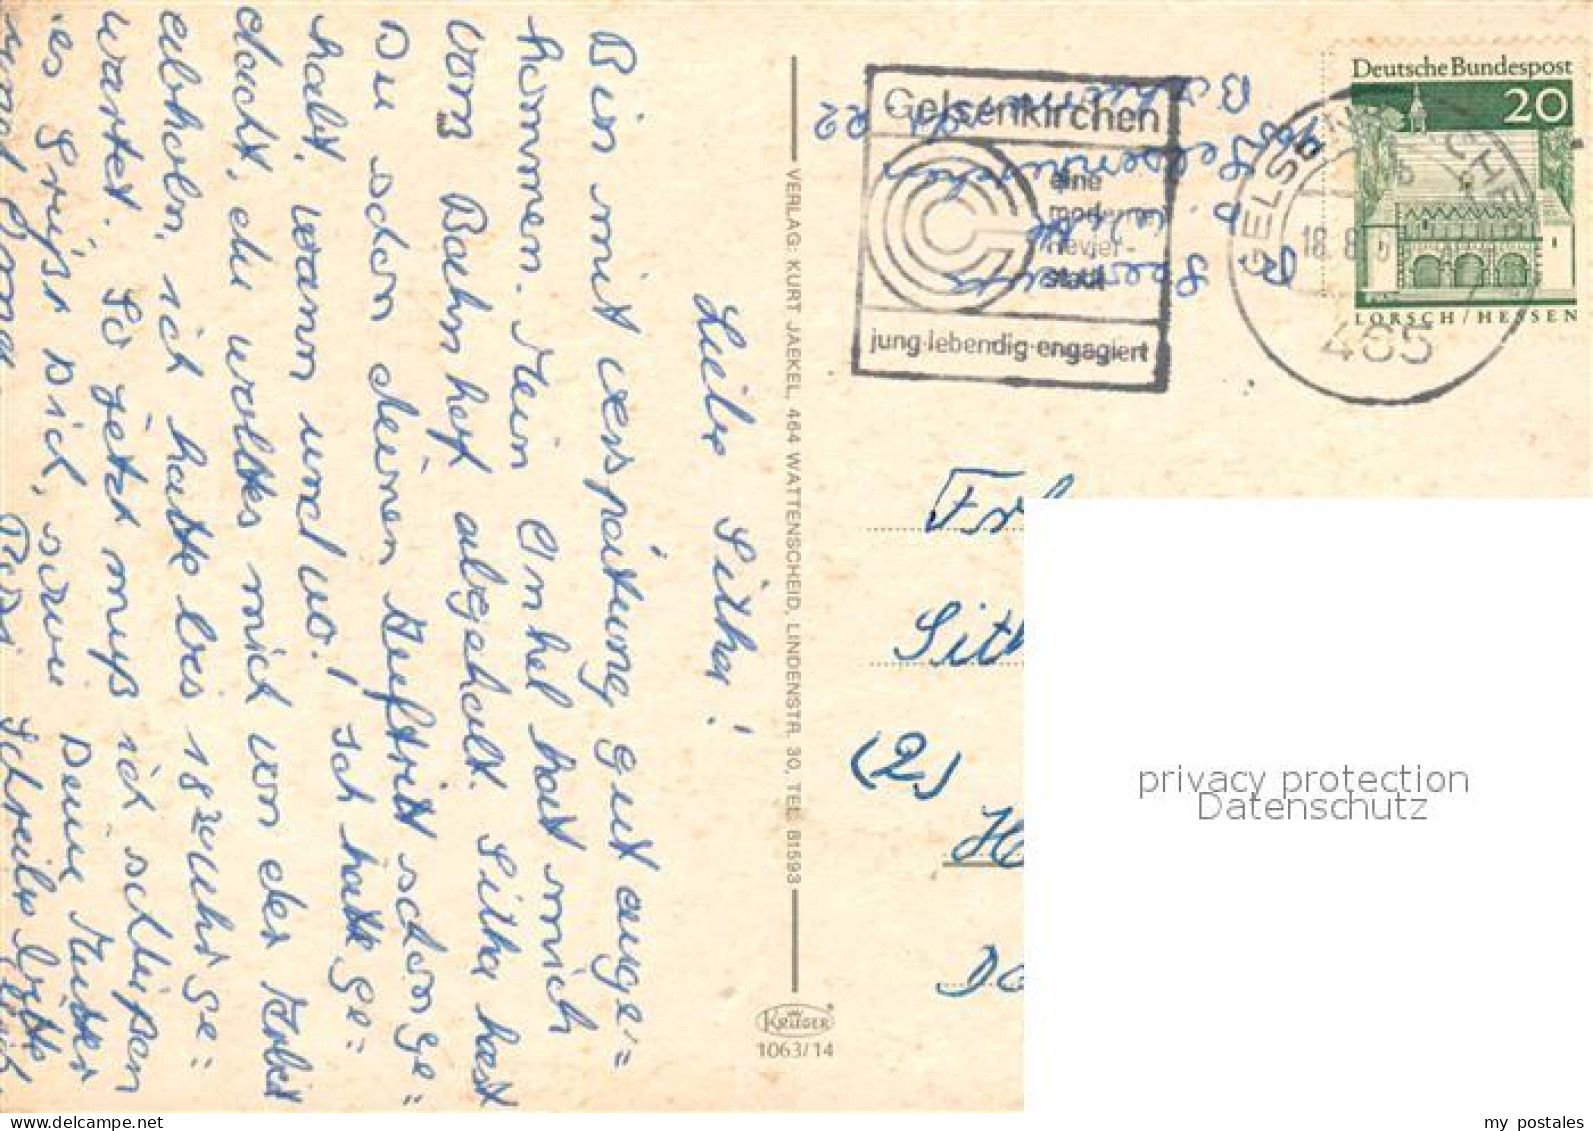 Liebe Sitha!
Bin mit verspätung gut ange=
kommen. Mein Onkel hat mich
vom Bahnhof abgeholt. Sitha hast
Du schon deinen Auftritt schon ge=
habt, wann und wo! Ich hatte ge=
dacht, du wolltes mich von der Arbeit
abholn, ich hatte bis 18 30 Uhr ge=
wartet. So jetzt muß ich schließen
es Grüßt Dich, sowie Deine Mutter
Schreibe bitte
VERLAG: KURT JAEKEL, 464 WATTENSCHEID, LINDENSTR. 30, TEL. 81593
KRÜGER
1063/14
Gelsenkirchen
eine
moderne
Revier-
stadt
jung·lebendig·engagiert
GELSENKIRCHEN
18.8.
465
Deutsche Bundespost
20
LORSCH/HESSEN
Gelsenkirchen
Frl
Sith
(2)
H
Do
privacy protection
Datenschutz
my postales